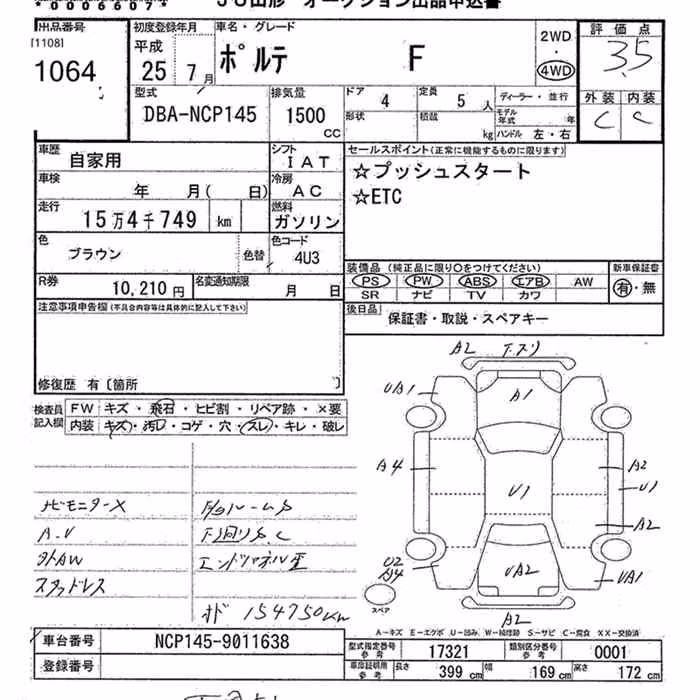 *00006607*
JU山形 オークション出品申込書
出品番号
[1108]
1064
初度登録年月
平成
25年7月
車名・グレード
ポルテ F
2WD
・
4WD
評価点
3.5
外装 内装
C C
型式
DBA-NCP145
排気量
1500
CC
ドア 4
定員 5人
形状
積載 kg
ディーラー・並行
モデル年式 年
ハンドル 左・右
車歴
自家用
シフト
IAT
車検
年 月( 日)
冷房
AC
走行
15万4千749 km
燃料
ガソリン
色
ブラウン
色替
色コード
4U3
R券
10,210円
名変通知期限
月 日
セールスポイント(正常に機能するものに限ります)
☆プッシュスタート
☆ETC
装備品 (純正品に限り○をつけてください)
PS PW ABS エアB AW
SR ナビ TV カワ
新車保証書
有・無
後日品
保証書・取説・スペアキー
注意事項申告欄(不具合内容等は具体的に記入して下さい)
修復歴 有〔箇所 〕
検査員
記入欄
FW キズ・飛石・ヒビ割・リペア跡・×要
内装 キズ・汚レ・コゲ・穴・スレ・キレ・破レ
ナビモニターX
A.V
社外AW
スタッドレス
下回りS.C
エンドパネル歪
154750km
A2 下スリ
UA1 A1
A4 A2
U1 U1
A2
U2
A4 UA2 UA1
スペア
A2
A-キズ E-エクボ U-凹み W-補修跡 S-サビ C-腐食 XX-交換済
車台番号 NCP145-9011638
登録番号
型式指定番号
参考
17321
類別区分番号
参考
0001
車庫証明用
参考
長さ 399 cm 幅 169 cm 高さ 172 cm